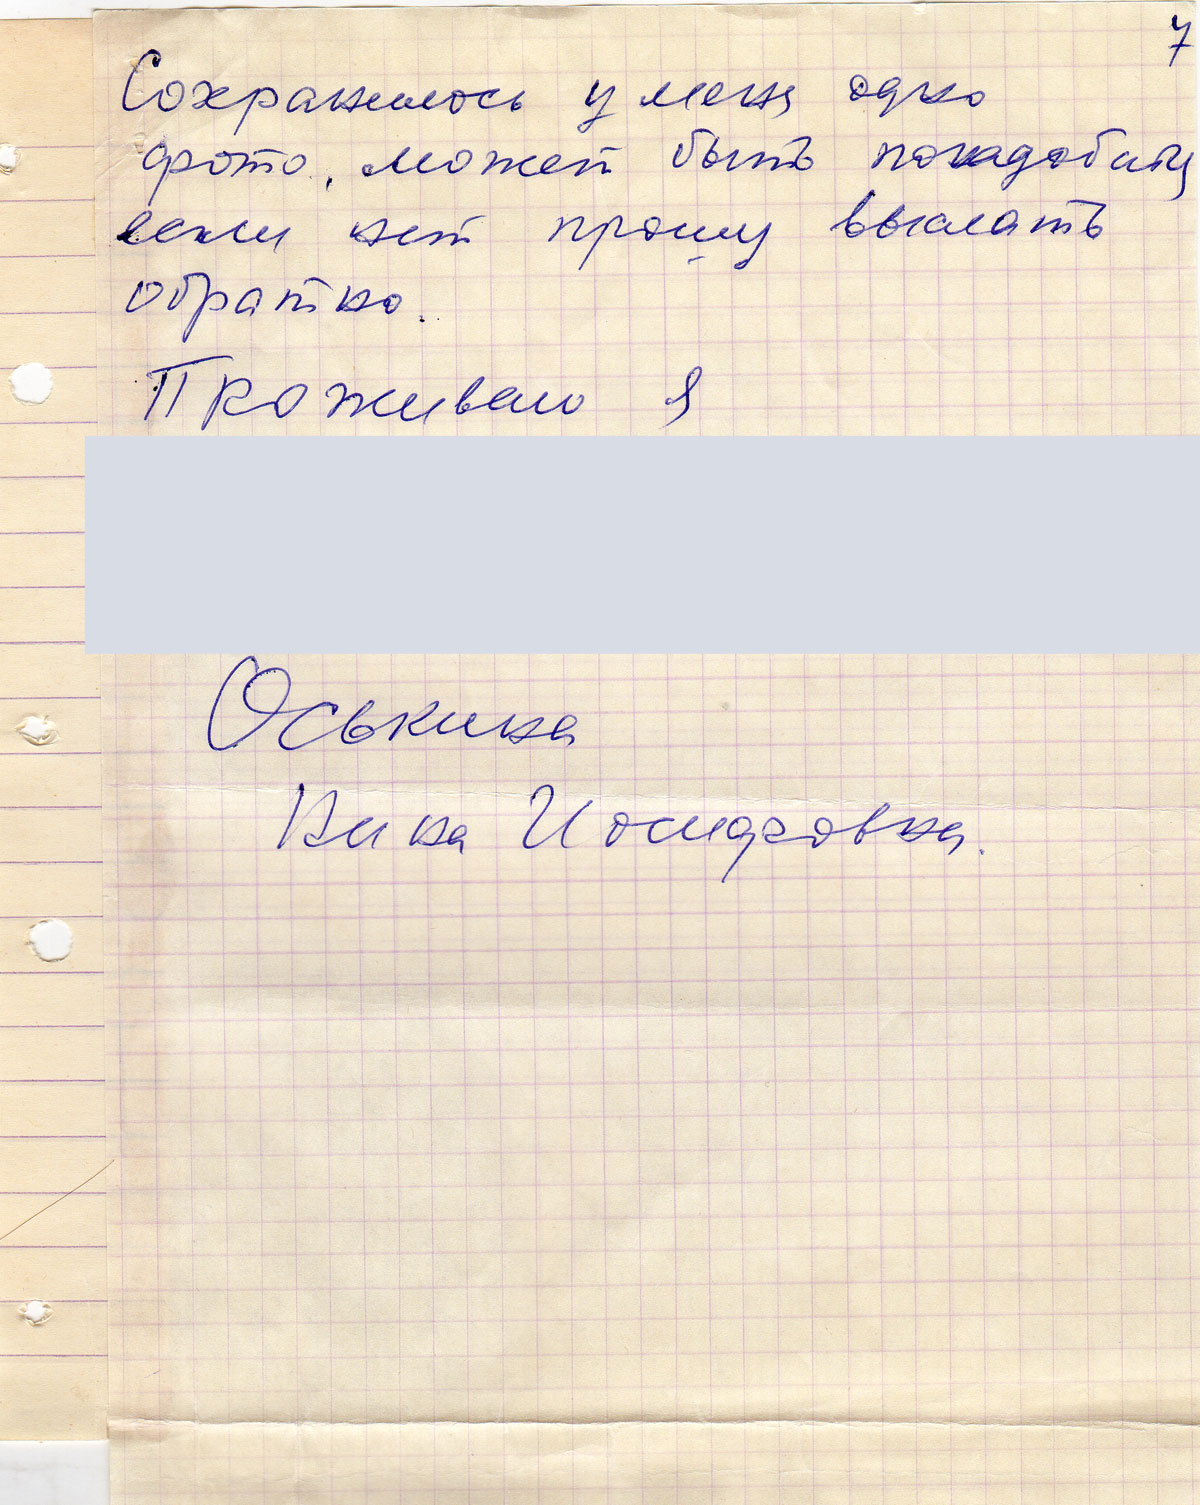 7
Сохранилось у меня одно
фото, может быть понадобится
если нет прошу выслать
обратно.
Проживаю я
Оськина
Нина